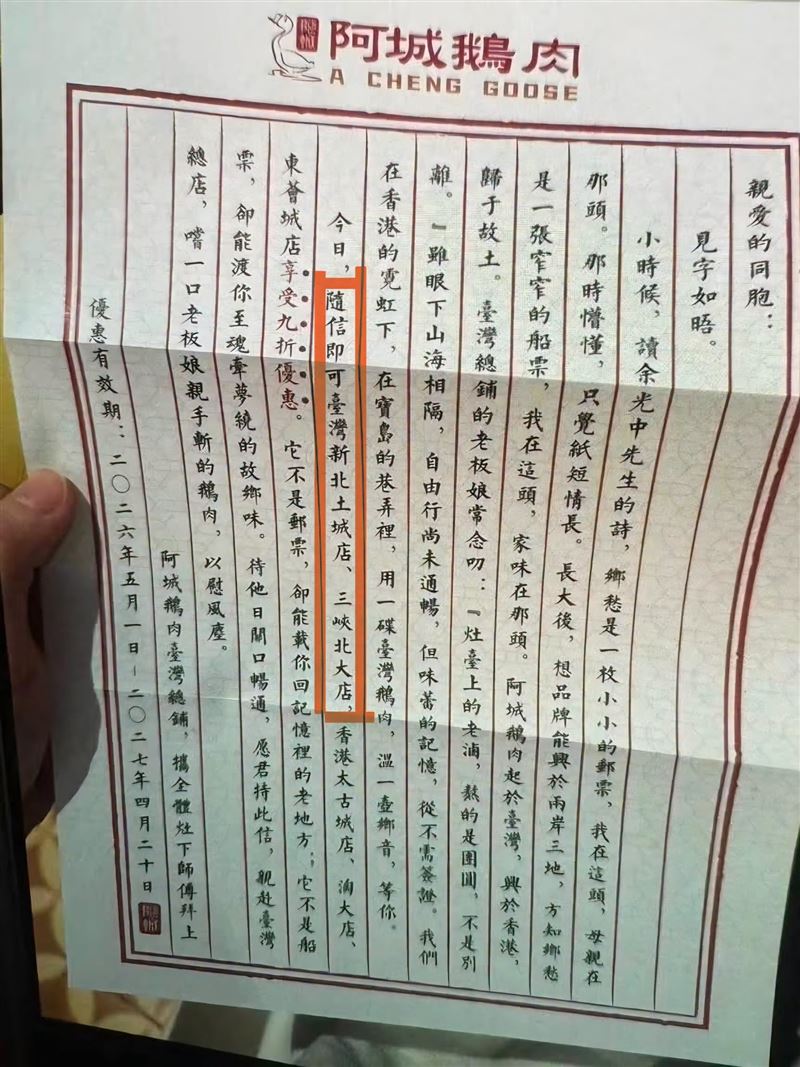 阿城鵝肉
A CHENG GOOSE
親愛的同胞：
見字如晤。
小時候，讀余光中先生的詩，鄉愁是一枚小小的郵票，我在這頭，母親在
那頭。那時懵懂，只覺紙短情長。長大後，想品牌能興於兩岸三地，方知鄉愁
是一張窄窄的船票，我在這頭，家味在那頭。阿城鵝肉起於臺灣，興於香港，
歸于故土。臺灣總鋪的老板娘常念叨：『灶臺上的老滷，熬的是團圓，不是別
離。』雖眼下山海相隔，自由行尚未通暢，但味蕾的記憶，從不需簽證。我們
在香港的霓虹下，在寶島的巷弄裡，用一碟臺灣鵝肉，溫一壺鄉音，等你。
今日，隨信即可臺灣新北土城店、三峽北大店，香港太古城店、淘大店、
東薈城店享受九折優惠。它不是郵票，卻能載你回記憶裡的老地方；它不是船
票，卻能渡你至魂牽夢繞的故鄉味。待他日關口暢通，愿君持此信，親赴臺灣
總店，嚐一口老板娘親手斬的鵝肉，以慰風塵。
阿城鵝肉臺灣總鋪，攜全體灶下師傅拜上
優惠有效期：二〇二六年五月一日－二〇二七年四月二十日